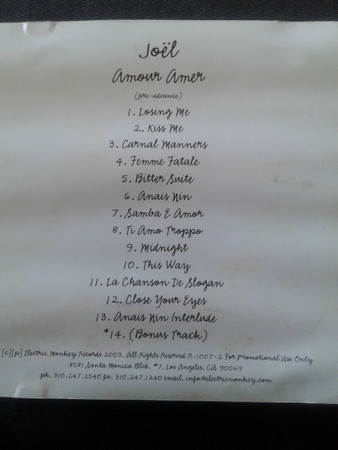 Joël
Amour Amer
(pre-advance)
1. Losing Me
2. Kiss Me
3. Carnal Manners
4. Femme Fatale
5. Bitter Suite
6. Anais Nin
7. Samba E Amor
8. Ti Amo Troppo
9. Midnight
10. This Way
11. La Chanson De Slogan
12. Close Your Eyes
13. Anais Nin Interlude
*14. (Bonus Track)
[c][p] Electric Monkey Records 2003. All Rights Reserved R-1007-2 For Promotional Use Only
8581 Santa Monica Blvd. #7, Los Angeles, CA 90069
ph. 310.247.2540 fx. 310.247.1240 email. info@electricmonkey.com